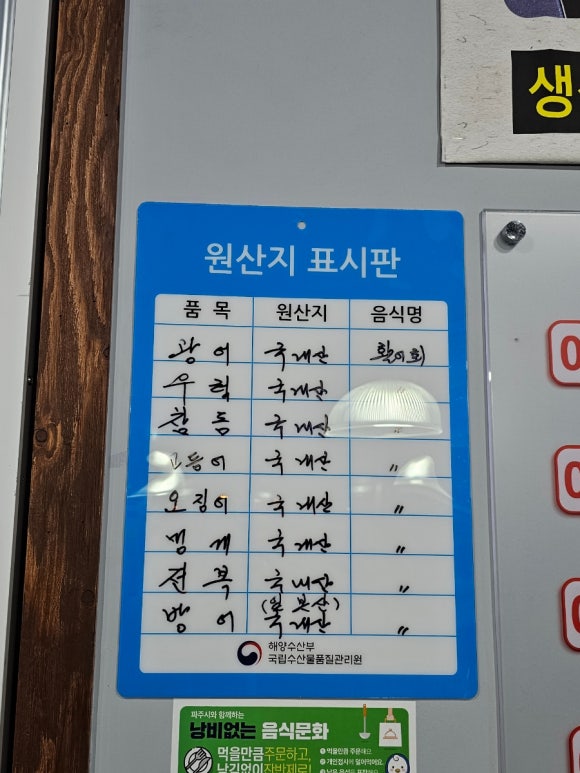 생
원산지 표시판
품 목 원산지 음식명
광 어 국내산 활어회
우 럭 국내산 〃
참 돔 국내산 〃
고등어 국내산 〃
오징어 국내산 〃
멍 게 국내산 〃
전 복 국내산 〃
(일본산)
방 어 국내산 〃
해양수산부
국립수산물품질관리원
파주시와 함께하는
낭비없는 음식문화
먹을만큼 주문하고,
남김없이 잔반제로!
1 먹을만큼 주문해요
2 개인접시가 있어약게요.